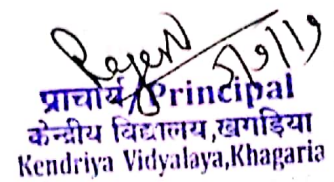 प्राचार्य/Principal
केन्द्रीय विद्यालय,खगड़िया
Kendriya Vidyalaya,Khagaria